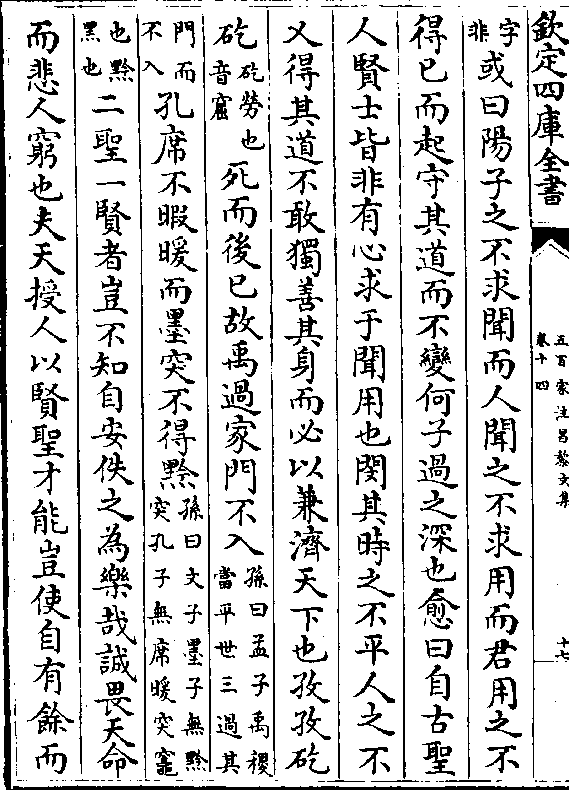 欽定四庫全書
五百家注昌黎文集
卷十四
十七
字非或曰陽子之不求聞而人聞之不求用而君用之不
得已而起守其道而不變何子過之深也愈曰自古聖
人賢士皆非有心求于聞用也閔其時之不平人之不
乂得其道不敢獨善其身而必以兼濟天下也孜孜矻
矻矻勞也音窟死而後已故禹過家門不入孫曰孟子禹稷當平世三過其
門而不入孔席不暇暖而墨突不得黔孫曰文子墨子無黔突孔子無席暖突竈
也黔黑也二聖一賢者豈不知自安佚之為樂哉誠畏天命
而悲人窮也夫天授人以賢聖才能豈使自有餘而